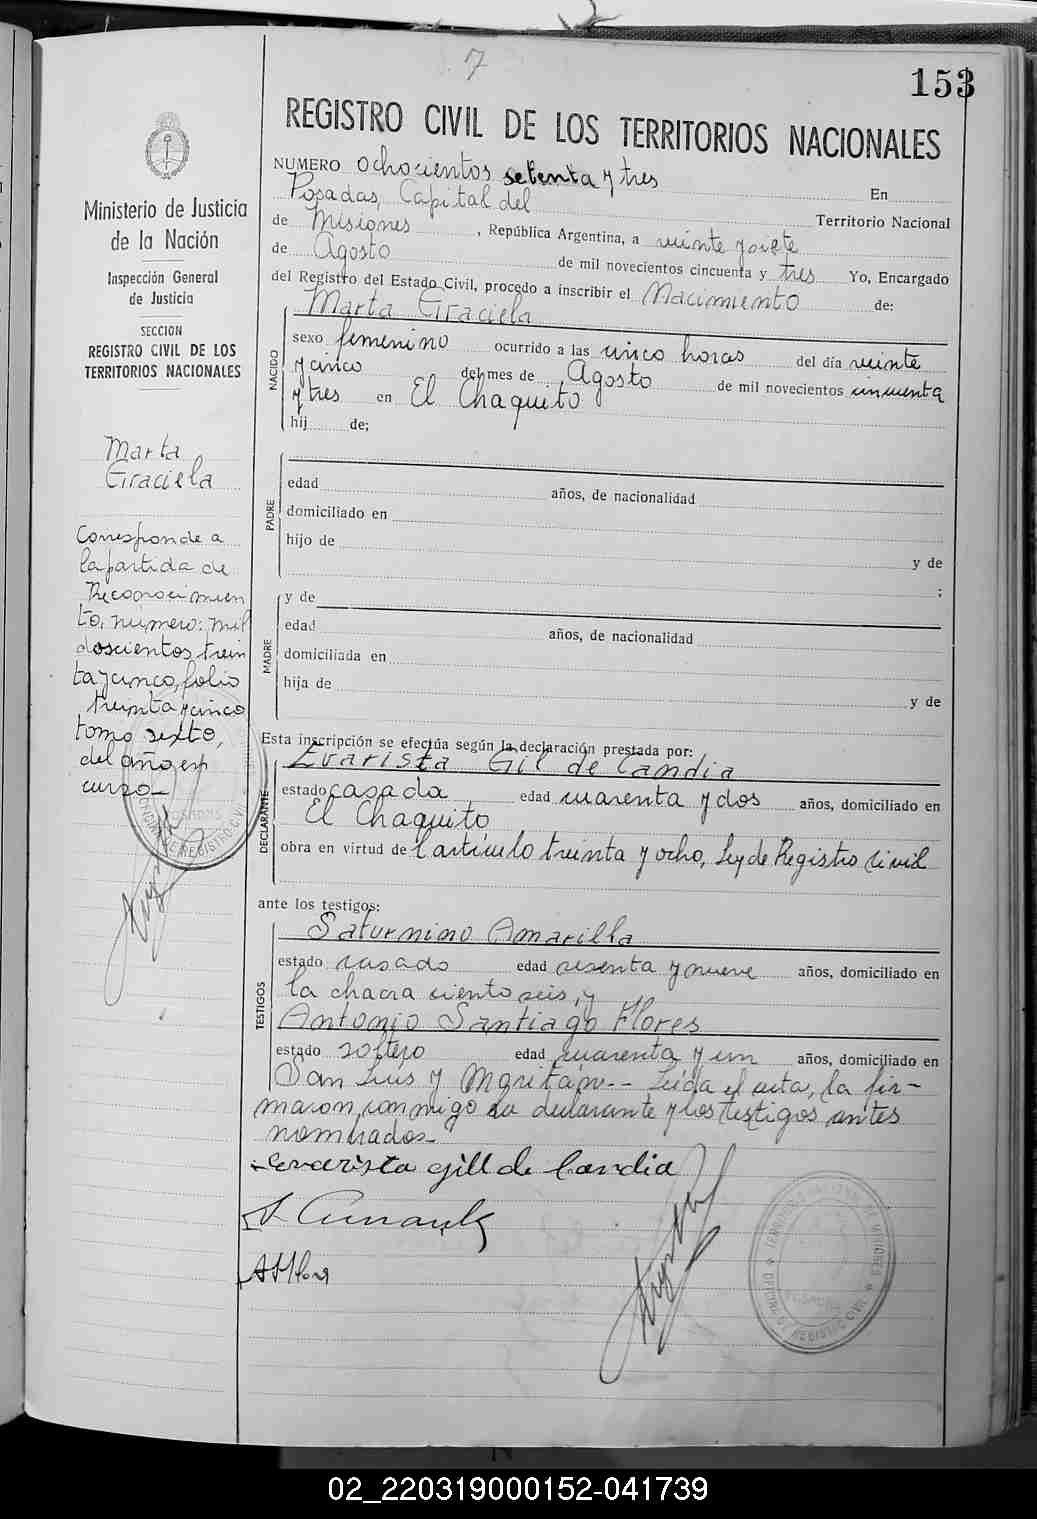 7
153
REGISTRO CIVIL DE LOS TERRITORIOS NACIONALES
NUMERO ochocientos setenta y tres En
Posadas, Capital del Territorio Nacional
de Misiones, República Argentina, a veinte y siete
de Agosto de mil novecientos cincuenta y tres Yo, Encargado
del Registro del Estado Civil, procedo a inscribir el Nacimiento de:
Marta Graciela
NACIDO
sexo femenino ocurrido a las cinco horas del día veinte
y cinco del mes de Agosto de mil novecientos cincuenta
y tres en El Chaquito
hij de;
PADRE
edad años, de nacionalidad
domiciliado en
hijo de y de
;
MADRE
y de
edad años, de nacionalidad
domiciliada en
hija de y de
Esta inscripción se efectúa según la declaración prestada por:
Evarista Gil de Candia
DECLARANTE
estado casada edad cuarenta y dos años, domiciliado en
El Chaquito
obra en virtud de l artículo treinta y ocho, Ley de Registro Civil
ante los testigos:
Saturnino Amarilla
TESTIGOS
estado casado edad sesenta y nueve años, domiciliado en
la chacra ciento seis, y
Antonio Santiago Flores
estado soltero edad cuarenta y un años, domiciliado en
San Luís y -- Leída el acta, la fir-
maron conmigo la declarante y los testigos antes
nombrados-
evarista gill de Candia
Ministerio de Justicia
de la Nación
Inspección General
de Justicia
SECCION
REGISTRO CIVIL DE LOS
TERRITORIOS NACIONALES
Marta
Graciela
Corresponde a
la partida de
Reconocimien
to, número: mil
doscientos trein
ta y cinco, folio
treinta y cinco
tomo sexto,
del año en
curso-
POSADAS
OFICINA DE REGISTRO CIVIL
TERRITORIO NACIONAL DE MISIONES
POSADAS
OFICINA DE REGISTRO CIVIL
02_220319000152-041739